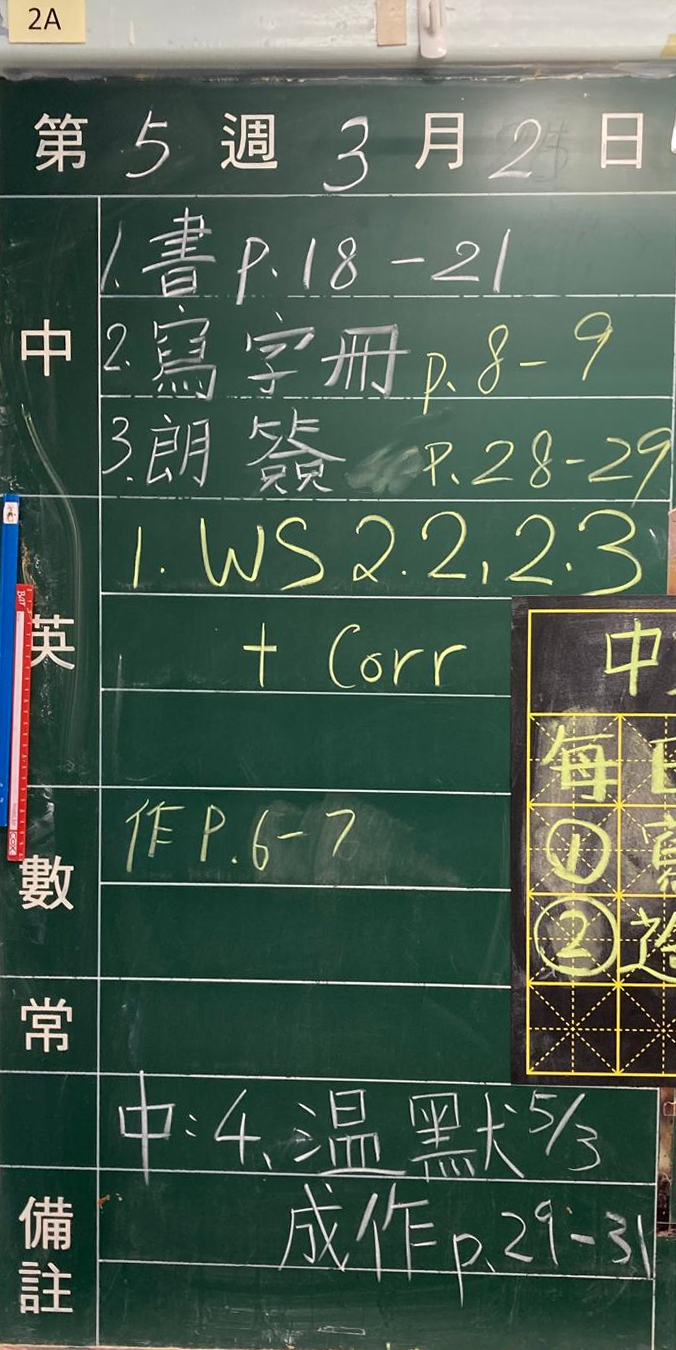 2A
第5週3月2日
中
1.書p.18-21
2.寫字冊p.8-9
3.朗簽 p.28-29
英
1. WS 2.2, 2.3
+ Corr
數
作P.6-7
常
備註
中:4、温默5/3
成作p.29-31
中
每日
①
②